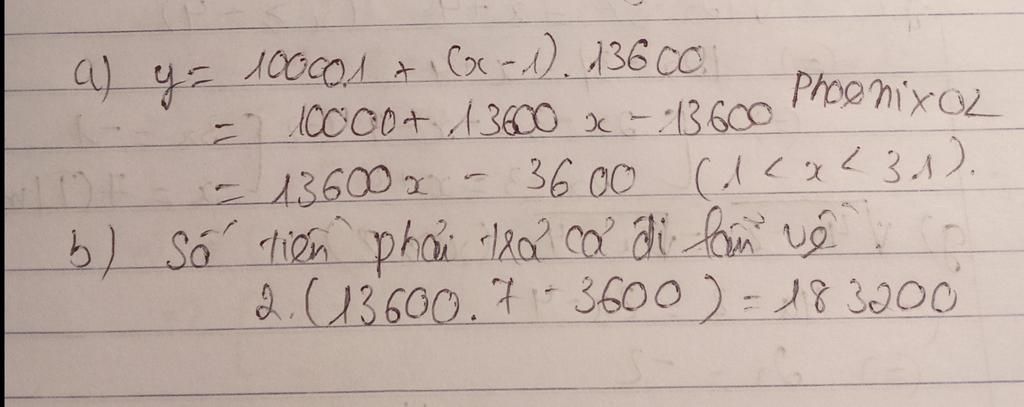 a) y = 10000.1 + (x - 1). 13600
= 10000 + 13600 x - 13600 PhoenixOL
= 13600x - 3600 (1 < x < 31).
b) Số tiền phải trả cả đi lẫn về:
2.(13600. 7 - 3600) = 183200